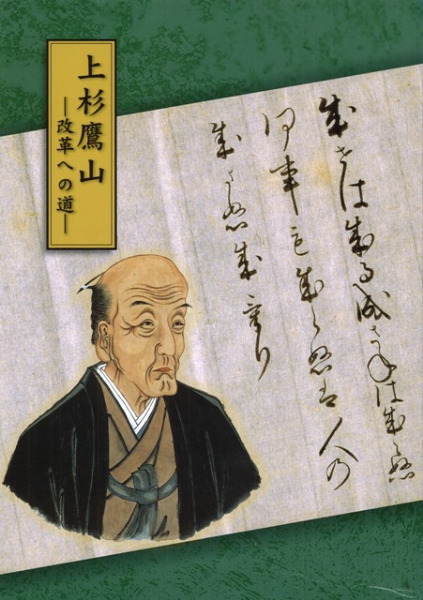 上杉鷹山
―改革への道―
成せは成る成さねは成らぬ
何事も成らぬは人の
成さぬ成けり